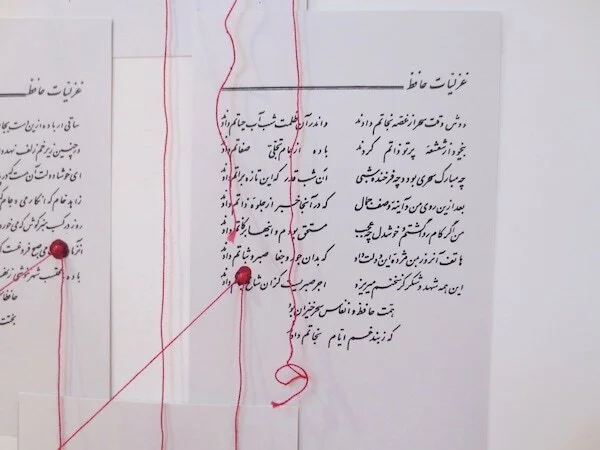 غزلیات حافظ
دوش وقت سحر از غصه نجاتم دادند واندر آن ظلمت شب آب حیاتم داد
بیخود از شعشعه پرتو ذاتم کردند باده از جام تجلی صفاتم داد
چه مبارک سحری بود و چه فرخنده شبی آن شب قدر که این تازه براتم داد
بعد ازین روی من و آینه وصف جمال که در آنجا خبر از جلوه ذاتم داد
من اگر کام روا گشتم و خوشدل چه عجب مستحق بودم و اینها بزکاتم داد
هاتف آنروز بمن مژده این دولت داد که بدان جور و جفا صبر و ثباتم داد
این همه شهد و شکر کز سخنم میریزد اجر صبریست کزان شاخ نباتم داد
همت حافظ و انفاس سحرخیزان بود
که ز بند غم ایام نجاتم داد
غزلیات حافظ
ساقی ار باده ازین دست بجا
در چنین زیر خم زلف نهد
ای خوشا دولت آن مست که در
زاهد خام که انکار می و جام
روز در کسب هنر کوش که می خور
می صبح فروغ
باده شهر ننوشی
حافظا
بختت